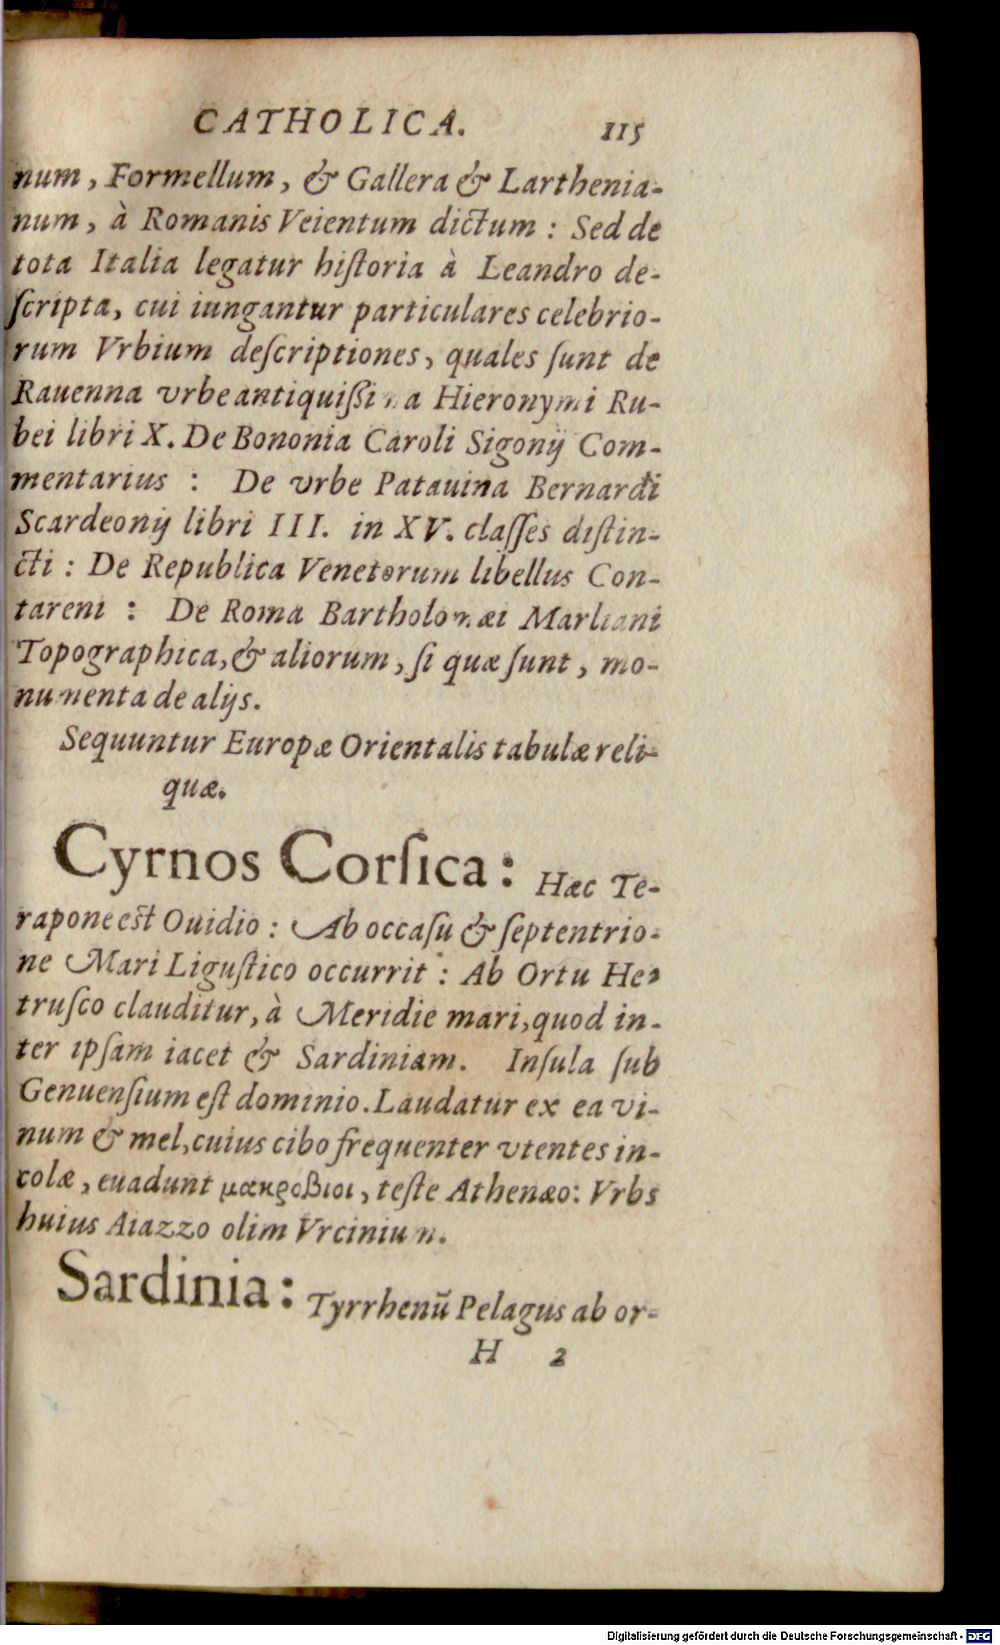 CATHOLICA. 115
num, Formellum, & Gallera & Larthenia-
num, à Romanis Veientum dictum : Sed de
tota Italia legatur hiſtoria à Leandro de-
ſcripta, cui iungantur particulares celebrio-
rum Vrbium deſcriptiones, quales ſunt de
Rauenna vrbe antiquiſſima Hieronymi Ru-
bei libri X. De Bononia Caroli Sigonij Com-
mentarius : De vrbe Patauina Bernardi
Scardeonij libri III. in XV. claſſes diſtin-
cti : De Republica Venetorum libellus Con-
tareni : De Roma Bartholomæi Marliani
Topographica, & aliorum, ſi quæ ſunt, mo-
numenta de alijs.
Sequuntur Europæ Orientalis tabulæ reli-
quæ.
Cyrnos Corſica: Hæc Te-
rapone eſt Ouidio : Ab occaſu & ſeptentrio-
ne Mari Liguſtico occurrit : Ab Ortu He-
truſco clauditur, à Meridie mari, quod in-
ter ipſam iacet & Sardiniam. Inſula ſub
Genuenſium eſt dominio. Laudatur ex ea vi-
num & mel, cuius cibo frequenter vtentes in-
colæ, euadunt μακροβιοι, teſte Athenæo: Vrbs
huius Aiazzo olim Vrcinium.
Sardinia: Tyrrhenũ Pelagus ab or-
H 2
Digitalisierung gefördert durch die Deutsche Forschungsgemeinschaft - DFG